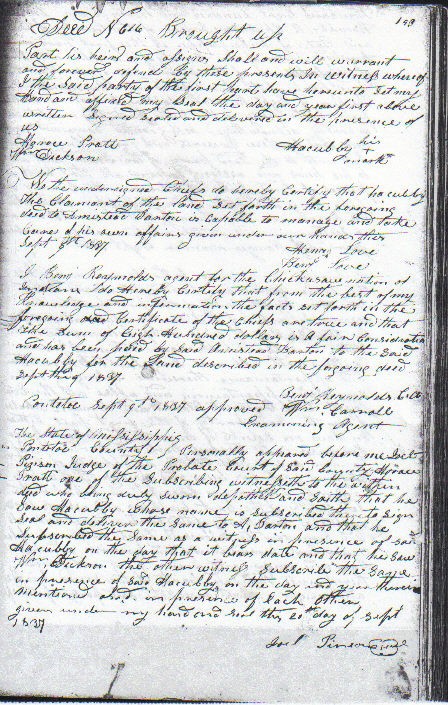 149
Deed No 16 Brought up
Part his heirs and assigns Shall and will warrant
and forever defend by these presents, In witness where of
I the said party of the first part have hereunto set my
hand and affixed my Seal the day and year first above
written Signed Sealed and delivered in the presence of
us
Horace Pratt Hacubby his
Wm Dickson X mark
We the undersigned Chiefs do hereby Certify that hacubby
the Claimant of the land Set forth in the foregoing
deed to Armistead Barton is Capable to manage and take
Care of his own affairs given under our hands this
Sept 9th 1837
Henry Love
Benj Love
I Benj Reynolds agent for the Chickasaw nation of
Indians do Hereby Certify that from the best of my
Knowledge and information the facts Set forth in the
foregoing deed Certificate of the Chiefs are true and that
the Sum of Eight Hundred dollars is a fair Consideration
and has been paid by Said Armistead Barton to the Said
Hacubby for the Land described in the forgoing deed
Sept 1837
Benj Reynolds
Pontotoc Sept 9th 1837 approved Wm Carroll
Examining Agent
The State of Mississippi
Pontotoc County Personally appeared before me Joel
Pinson Judge of the Probate Court of Said County Horace
Pratt one of the Subscribing witnesseth to the within
deed who being duly sworn deposeth and Saith that he
Saw Hacubby whose name is Subscribed there to Sign
Seal and deliver the Same to A. Barton and that he
Subscribed the Same as a witness in presence of said
Hacubby on the day that it bears date and that he saw
Wm Dickson the other witness Subscribe the Same
in presence of Said Hacubby on the day and year therein
mentioned and in presence of Each other
given under my hand and seal this 20th day of Sept
1837
Joel Pinson